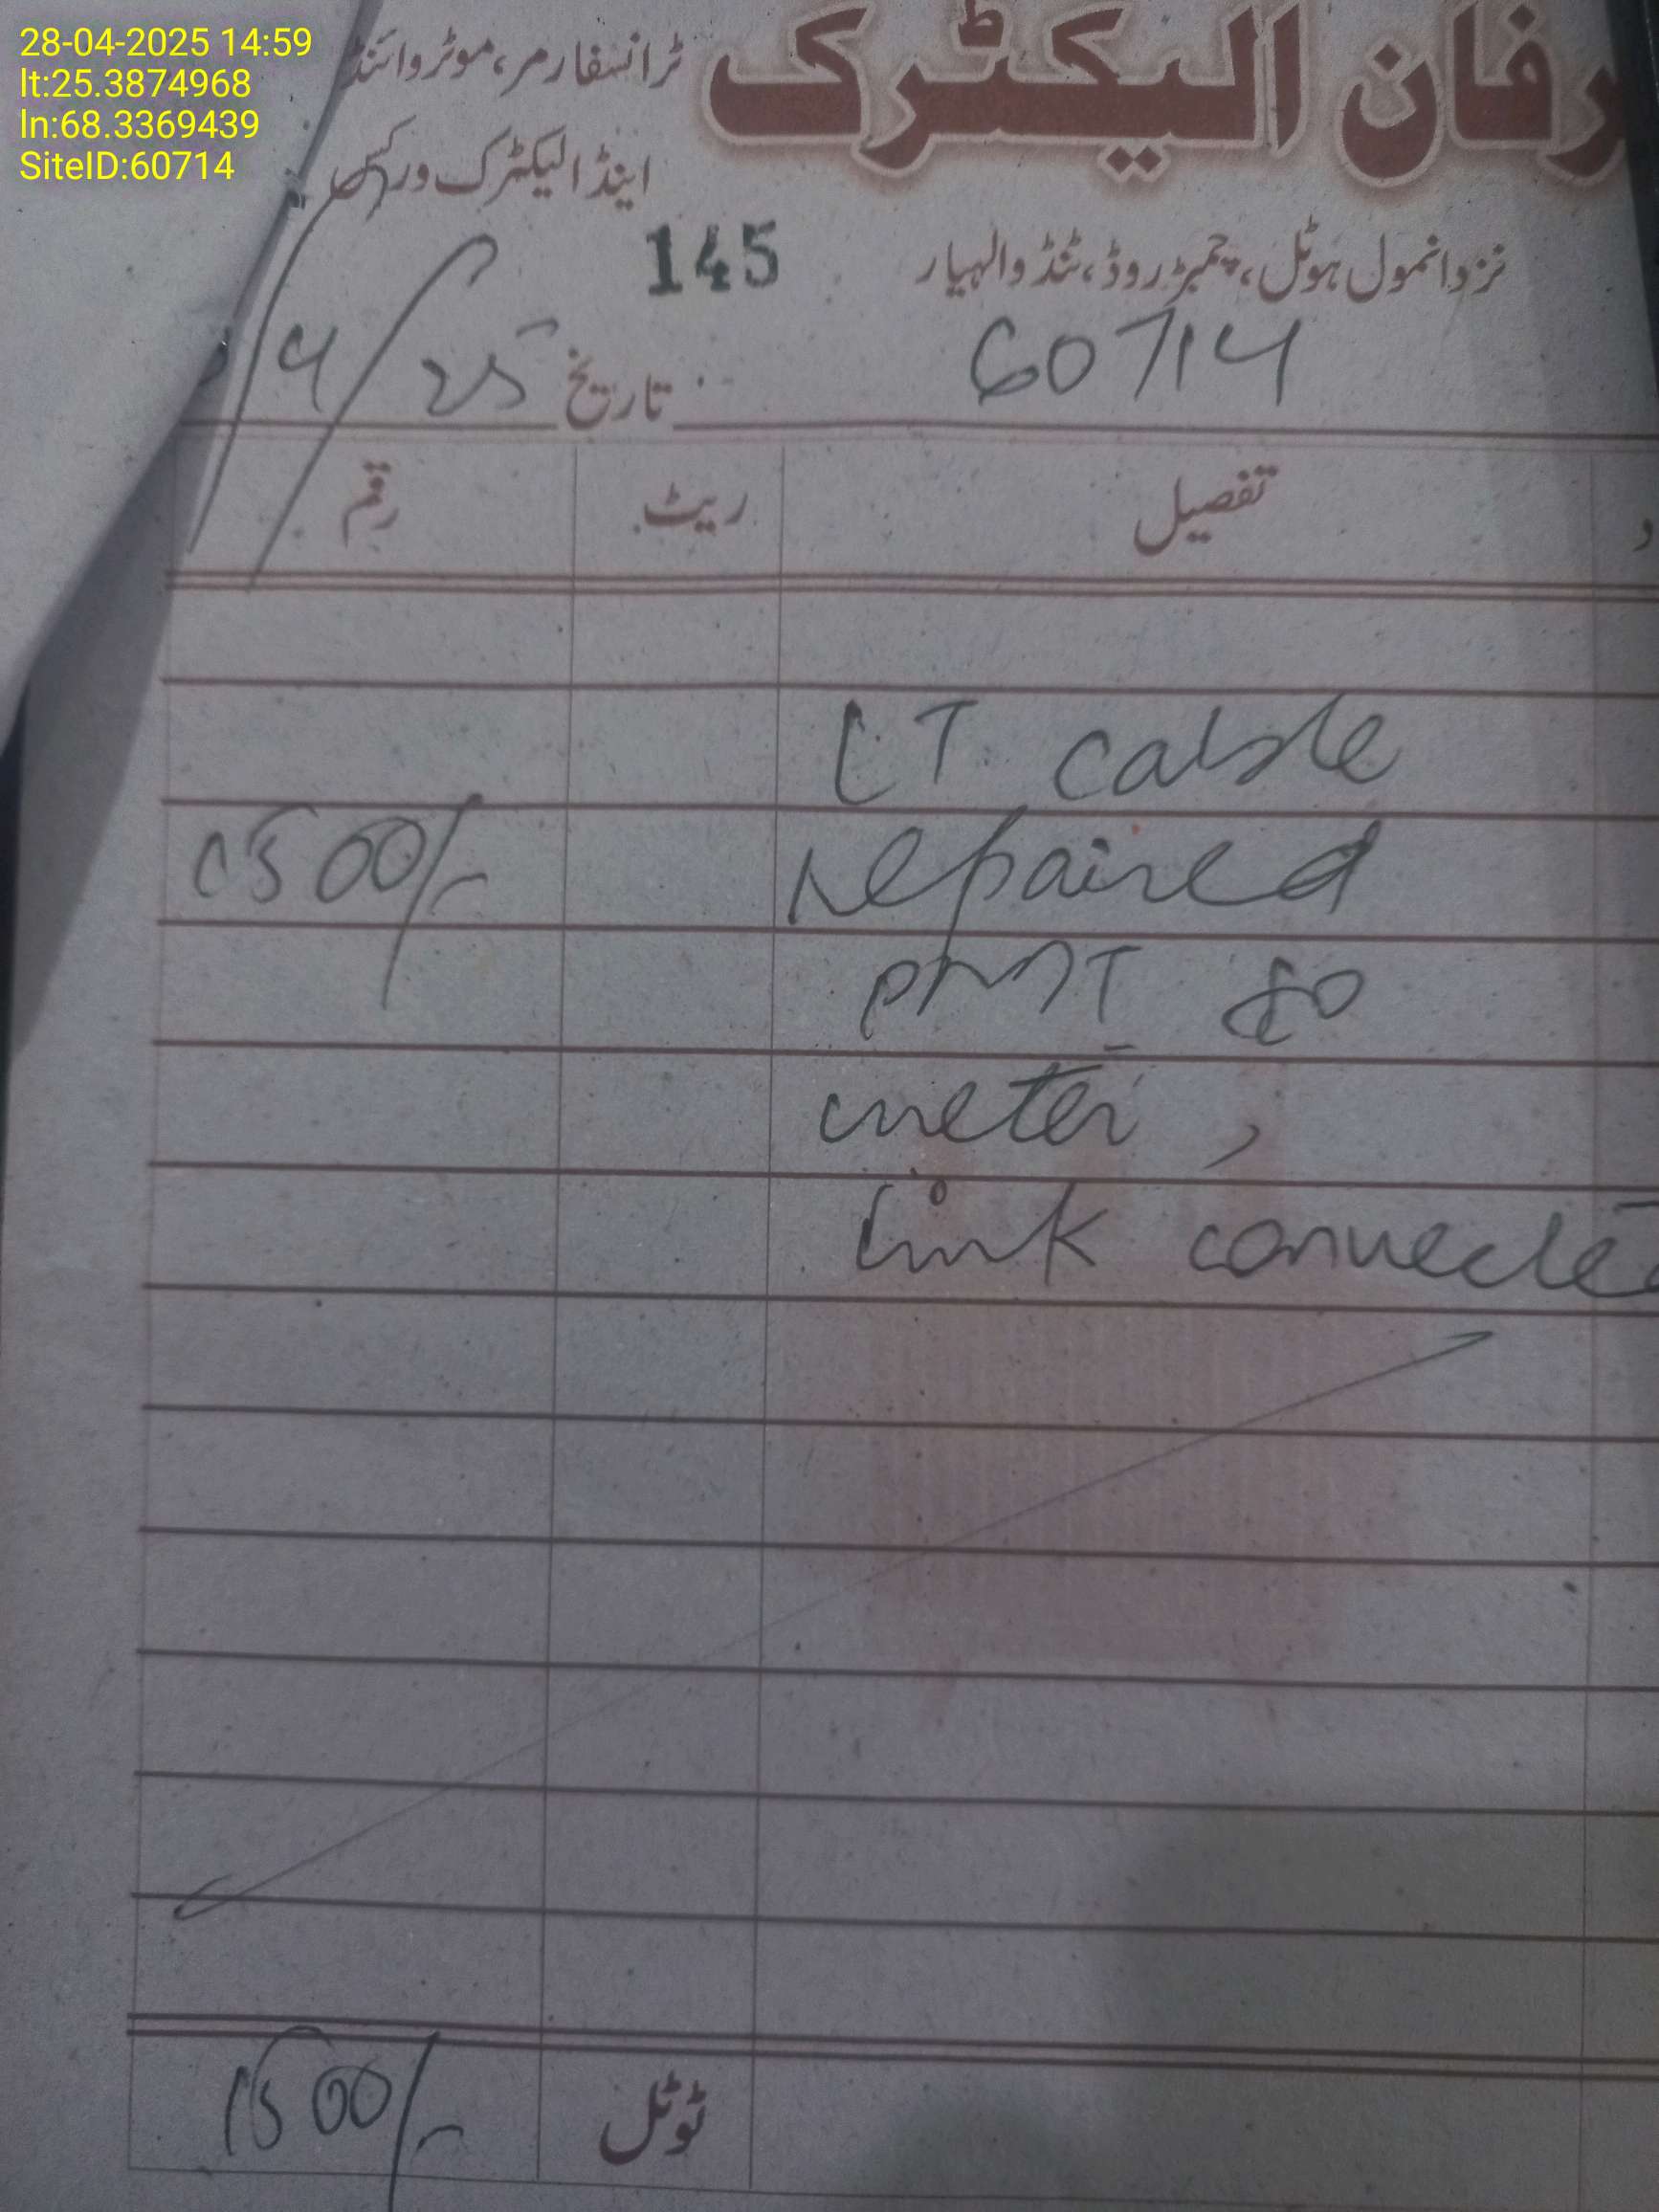 28-04-2025 14:59
lt:25.3874968
ln:68.3369439
SiteID:60714
رفان الیکٹرک
ٹرانسفارمر، موٹروائنڈ
اینڈ الیکٹرک ورکس
145
نزد انمول ہوٹل، چمبڑ روڈ، ٹنڈوالہیار
60714
تاریخ /4/25
تفصیل ریٹ رقم
LT cable
repaired 1500/-
PMT to
meter,
link connected
ٹوٹل 1500/-